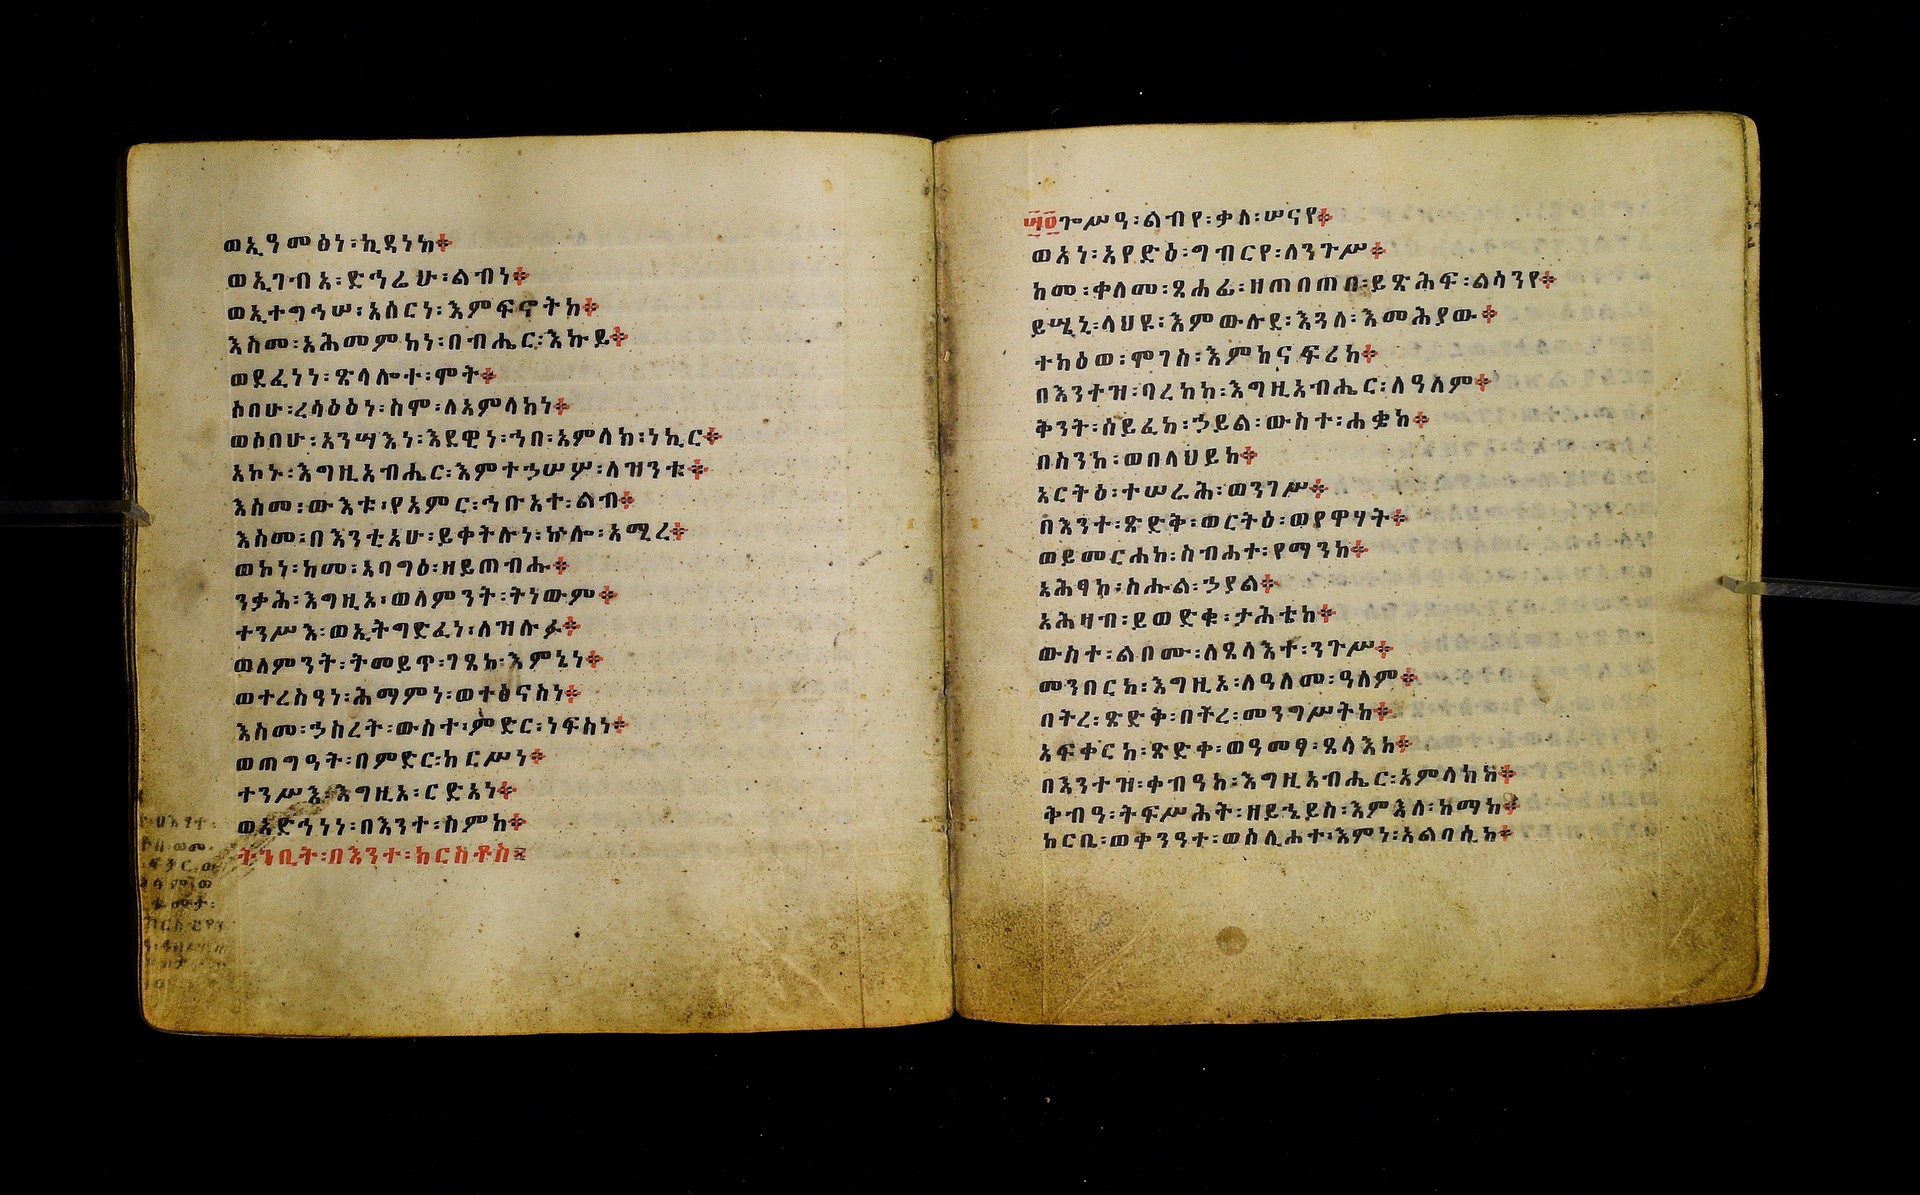 ወኢዓመፅነ፡ኪዳነከ።
ወኢገብአ፡ድኅሬሁ፡ልብነ።
ወኢተግኅሠ፡አሰርነ፡እምፍኖትከ።
እስመ፡አሕመምከነ፡በብሔር፡እኩይ።
ወደፈነነ፡ጽላሎተ፡ሞት።
ሶበሁ፡ረሳዕዕነ፡ስሞ፡ለአምላከነ።
ወሶበሁ፡አንሣእነ፡እደዊነ፡ኀበ፡አምላከ፡ነኪር።
አኮኑ፡እግዚአብሔር፡እምተኃሠሦ፡ለዝንቱ።
እስመ፡ውእቱ፡የአምር፡ኅቡአተ፡ልብ።
እስመ፡በእንቲአሁ፡ይቀትሉነ፡ኵሎ፡አሚረ።
ወኮነ፡ከመ፡አባግዕ፡ዘይጠብሑ።
ንቃሕ፡እግዚአ፡ወለምንት፡ትነውም።
ተንሥእ፡ወኢትግድፈነ፡ለዝሉፉ።
ወለምንት፡ትመይጥ፡ገጸከ፡እምኔነ።
ወተረስዓነ፡ሕማምነ፡ወተፅናስነ።
እስመ፡ኃስረት፡ውስተ፡ምድር፡ነፍስነ።
ወጠግዓት፡በምድር፡ከርሥነ።
ተንሥእ፡እግዚአ፡ርድአነ።
ወአድኅነነ፡በእንተ፡ስምከ።
ትንቢት፡በእንተ፡ክርስቶስ።
ጐሥዓ፡ልብየ፡ቃለ፡ሠናየ።
ወአነ፡አየድዕ፡ግብርየ፡ለንጉሥ።
ከመ፡ቀለመ፡ጸሐፊ፡ዘጠበጠበ፡ይጽሕፍ፡ልሳንየ።
ይሤኒ፡ላህዩ፡እምውሉደ፡እጓለ፡እመሕያው።
ተክዕወ፡ሞገስ፡እምከናፍሪከ።
በእንተዝ፡ባረከከ፡እግዚአብሔር፡ለዓለም።
ቅንት፡ሰይፈከ፡ኃይል፡ውስተ፡ሐቌከ።
በስንከ፡ወበላህይከ።
አርትዕ፡ተሠራሕ፡ወንገሥ።
በእንተ፡ጽድቅ፡ወርትዕ፡ወየዋሃት።
ወይመርሐከ፡ስብሐተ፡የማንከ።
አሕፃከ፡ስሑል፡ኃያል።
አሕዛብ፡ይወድቁ፡ታሕቴከ።
ውስተ፡ልበሙ፡ለጸላእተ፡ንጉሥ።
መንበርከ፡እግዚአ፡ለዓለመ፡ዓለም።
በትረ፡ጽድቅ፡በትረ፡መንግሥትከ።
አፍቀርከ፡ጽድቀ፡ወዓመፃ፡ጸላእከ።
በእንተዝ፡ቀብዓከ፡እግዚአብሔር፡አምላክከ።
ቅብዓ፡ትፍሥሕት፡ዘይኄይስ፡እምእለ፡ከማከ።
ከርቤ፡ወቀንዓተ፡ወስሊሐተ፡እምነ፡አልባሲከ።